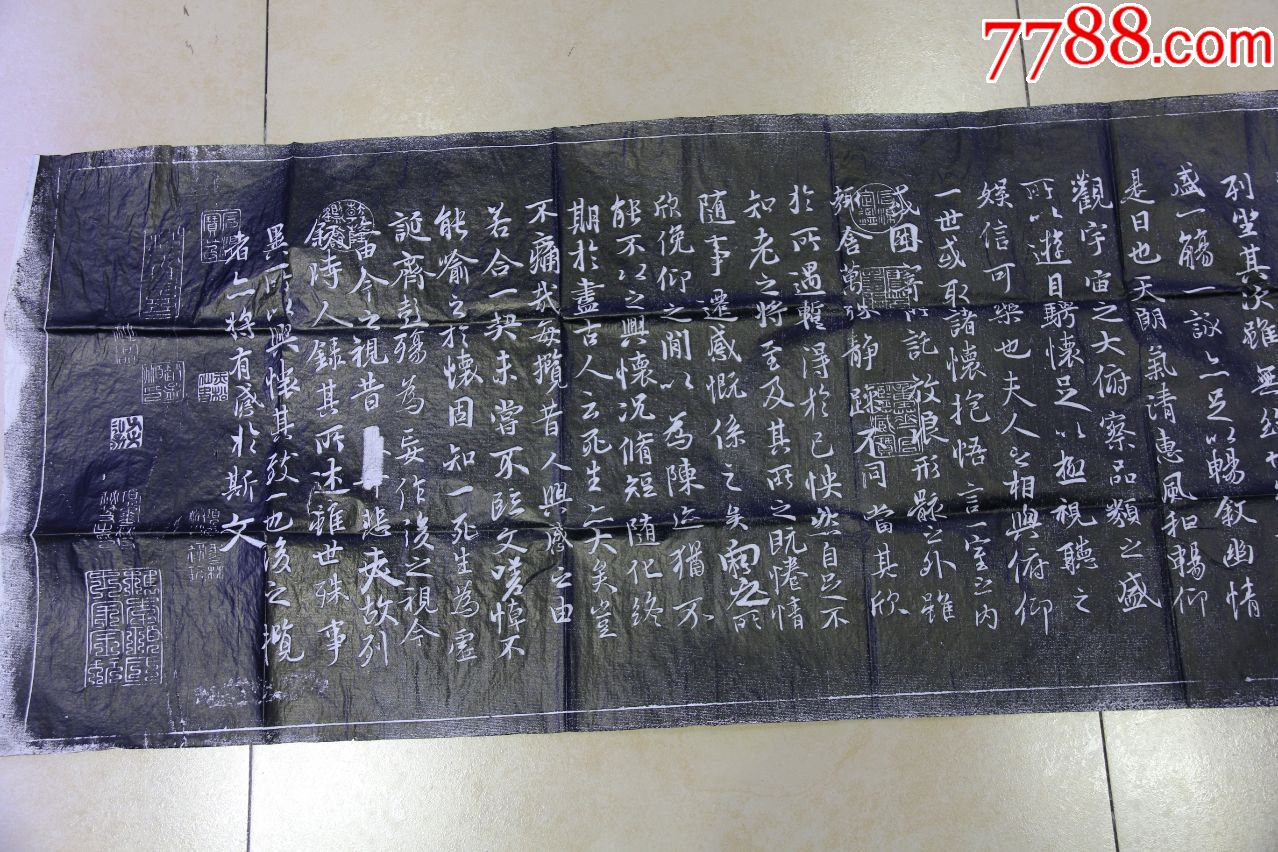 7788.com
列坐其次雖無絲竹
盛一觴一詠亦足以暢敘幽情
是日也天朗氣清惠風和暢仰
觀宇宙之大俯察品類之盛
所以遊目騁懷足以極視聽之
娛信可樂也夫人之相與俯仰
一世或取諸懷抱悟言一室之內
或因寄所託放浪形骸之外雖
趣舍萬殊靜躁不同當其欣
於所遇蹔得於己怏然自足不
知老之將至及其所之既惓情
隨事遷感慨係之矣向之所
欣俛仰之閒以為陳迹猶不
能不以之興懷況脩短隨化終
期於盡古人云死生亦大矣豈
不痛哉每攬昔人興感之由
若合一契未嘗不臨文嗟悼不
能喻之於懷固知一死生為虛
誕齊彭殤為妄作後之視今
由今之視昔悲夫故列
敘時人錄其所述雖世殊事
異所以興懷其致一也後之攬
者亦將有感於斯文